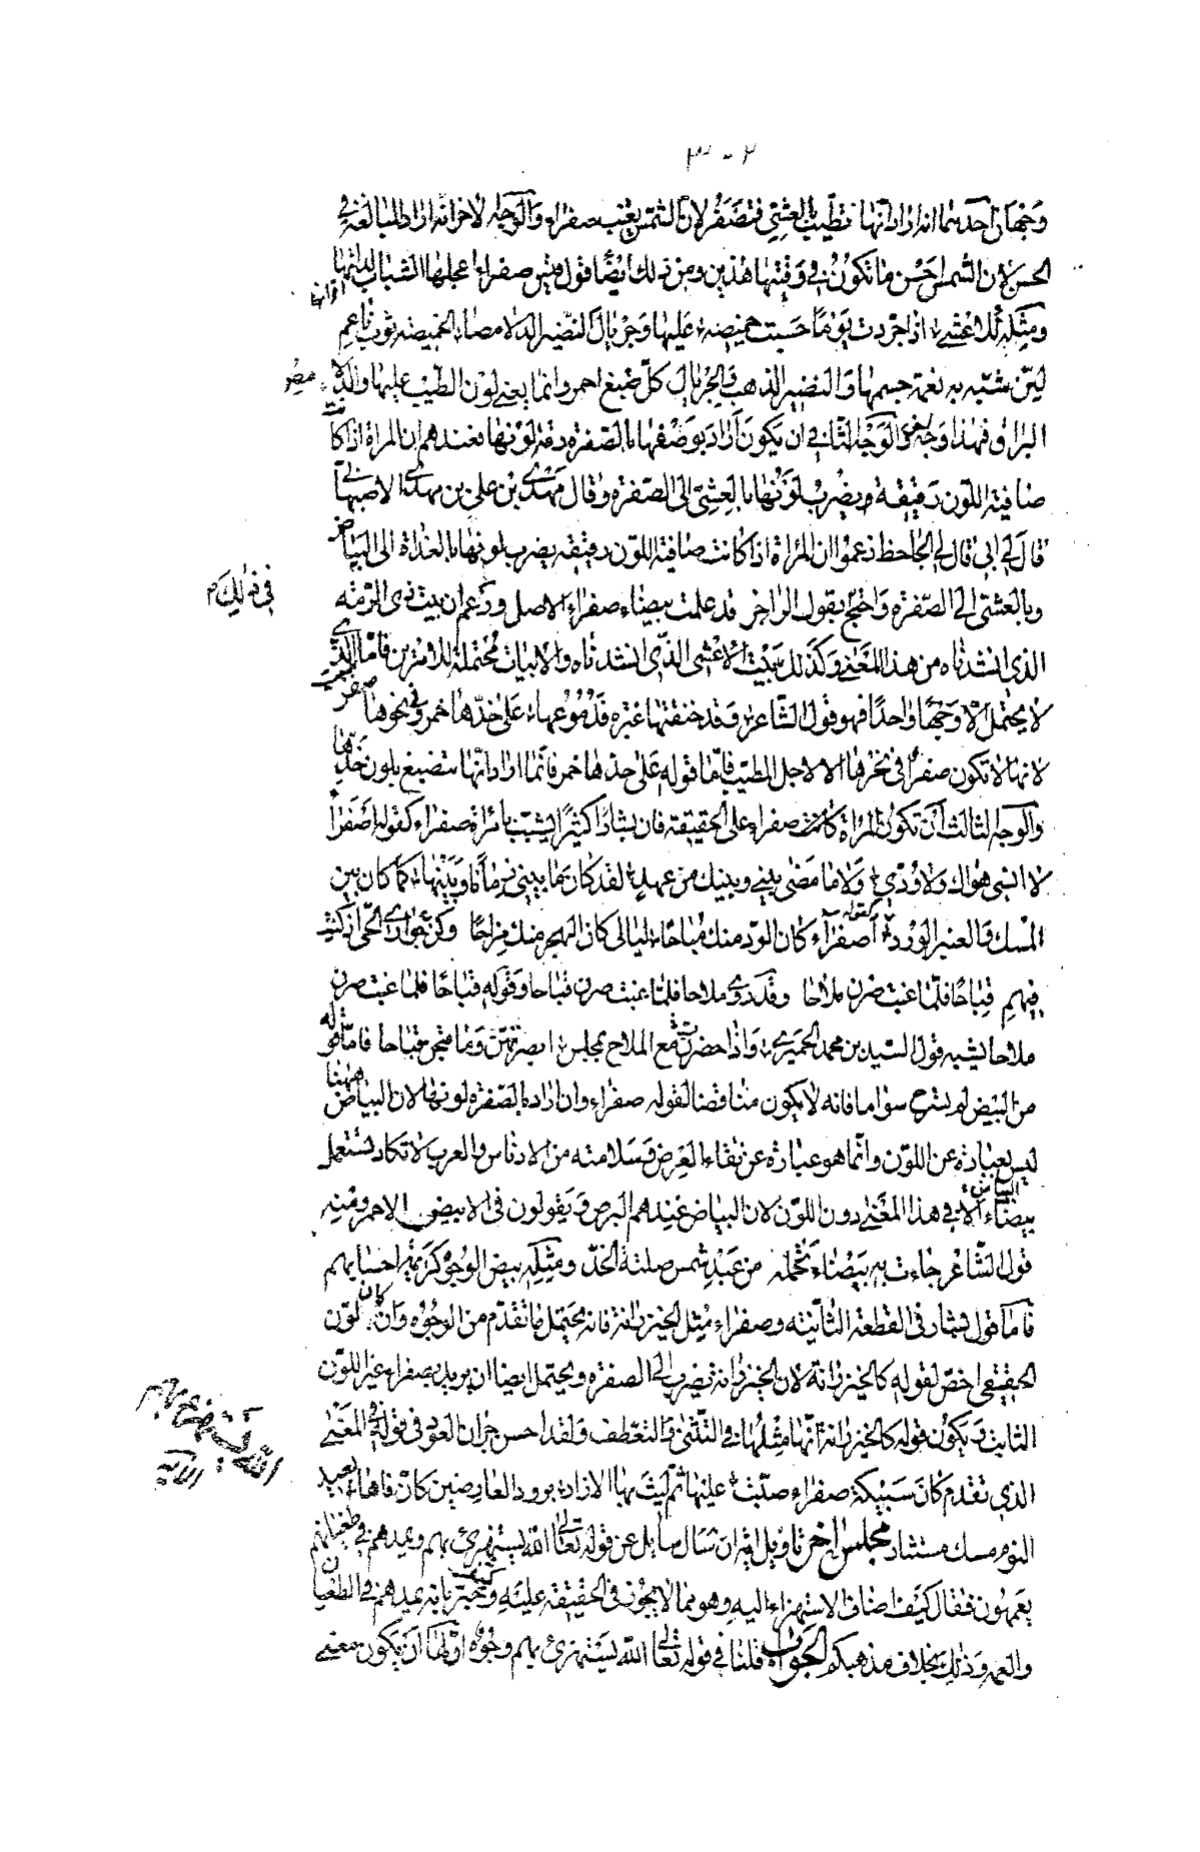 ٣٠٢
وجهان احدهما انه اراد انها تطيب بالعشي فتصفر لان الشمس تغيب صفراء والوجه الاخر انه اراد المبالغة في
الحسن لان الشمس احسن ما تكون في وقتيها هذين ومن ذلك ايضا قول قيس صفراء اعجلها الشباب لداتها
ومثله للاعشى اذا جردت يوما حسبت خميصة عليها وجريال النضير الدلامصا الخميصة ثوب ناعم
لين شبه به نعمة جسمها والنضير الذهب والجريال كل صبغ احمر وانما يعني لون الطيب عليها والدلامص
البراق فهذا وجه اخر والوجه الثاني ان يكون اراد بوصفها بالصفرة رقة لونها فعندهم ان المراة اذا كانت
صافية اللون رقيقة ويضرب لونها بالعشي الى الصفرة وقال مهدي بن علي بن مهدي الاصبهاني
قال لي ابي قال لي الجاحظ زعموا ان المراة اذا كانت صافية اللون رقيقة يضرب لونها بالغداة الى البياض
وبالعشي الى الصفرة واحتج في ذلك بقول الراجز قد علمت بيضاء صفراء الاصل وزعم ان بيت ذي الرمة
الذي انشدناه من هذا المعنى وكذلك بيت الاعشى الذي انشدناه والابيات محتملة للامرين فاما الذي
لا يحتمل الا وجها واحدا فهو قول الشاعر وقد خنقتها عبرة فدموعها على خدها حمر وفي نحرها صفر
لانها لا تكون صفرا في نحرها الا لاجل الطيب فاما قوله على خدها حمر فانما اراد انها تنصبغ بلون خدها
والوجه الثالث ان تكون المراة كانت صفراء على الحقيقة فان بشارا كثيرا يشبب بامراة صفراء كقوله اصفراء
لا انسى هواك ولا ودي ولا ما مضى بيني وبينك من عهد لقد كان ما بيني زمانا وبينها كما كان بين
المسك والعنبر الورد كقوله اصفراء كان الود منك مباحا ليالي كان الهجر منك مزاحا وكن جواري الحي اذ كنت
فيهم قباحا فلما غبت صرن ملاحا وقد روي ملاحا فلما غبت صرن قباحا وقوله قباحا فلما غبت صرن
ملاحا يشبه قول السيد بن محمد الحميري واذا حضرن مع الملاح بمجلس ابصرتهن وما قبحن قباحا فاما قوله
من البيض لم تسرح سواما فانه لا يكون مناقضا لقوله صفراء وان اراد بالصفرة لونها لان البياض ههنا
ليس بعبارة عن اللون وانما هو عبارة عن نقاء العرض وسلامته من الادناس والعرب لا تكاد تستعمل
البياض الا في هذا المعنى دون اللون لان البياض عندهم البرص ويقولون في الابيض الاحمر ومنه
قول الشاعر جاءت به بيضاء تحمله من عبد شمس صلتة الخد ومثله بيض الوجوه كريمة احسابهم
فاما قول بشار في القطعة الثانية وصفراء مثل الخيزرانة فانه يحتمل ما تقدم من الوجوه وان كان اللون
الحقيقي اخص لقوله كالخيزرانة لان الخيزرانة تضرب الى الصفرة ويحتمل ايضا ان يريد بصفراء غير اللون
الثابت ويكون قوله كالخيزرانة انها مثلها في التثني والتعطف ولقد احسن جران العود في قوله في المعنى
الذي تقدم كان سبيكة صفراء صبت عليها ثم ليث بها الازار برود العارضين كان فاها بعيد
النوم مسك مستثار مجلس اخر تاويل اية ان سال سايل عن قوله تعالى الله يستهزئ بهم ويمدهم في طغيانهم
يعمهون فقال كيف اضاف الاستهزاء اليه وهو مما لا يجوز في الحقيقة عليه وكيف خبر بانه يمدهم في الطغيان
والعمه وذلك بخلاف مذهبكم الجواب قلنا في قوله تعالى الله يستهزئ بهم وجوه اولها ان يكون معنى